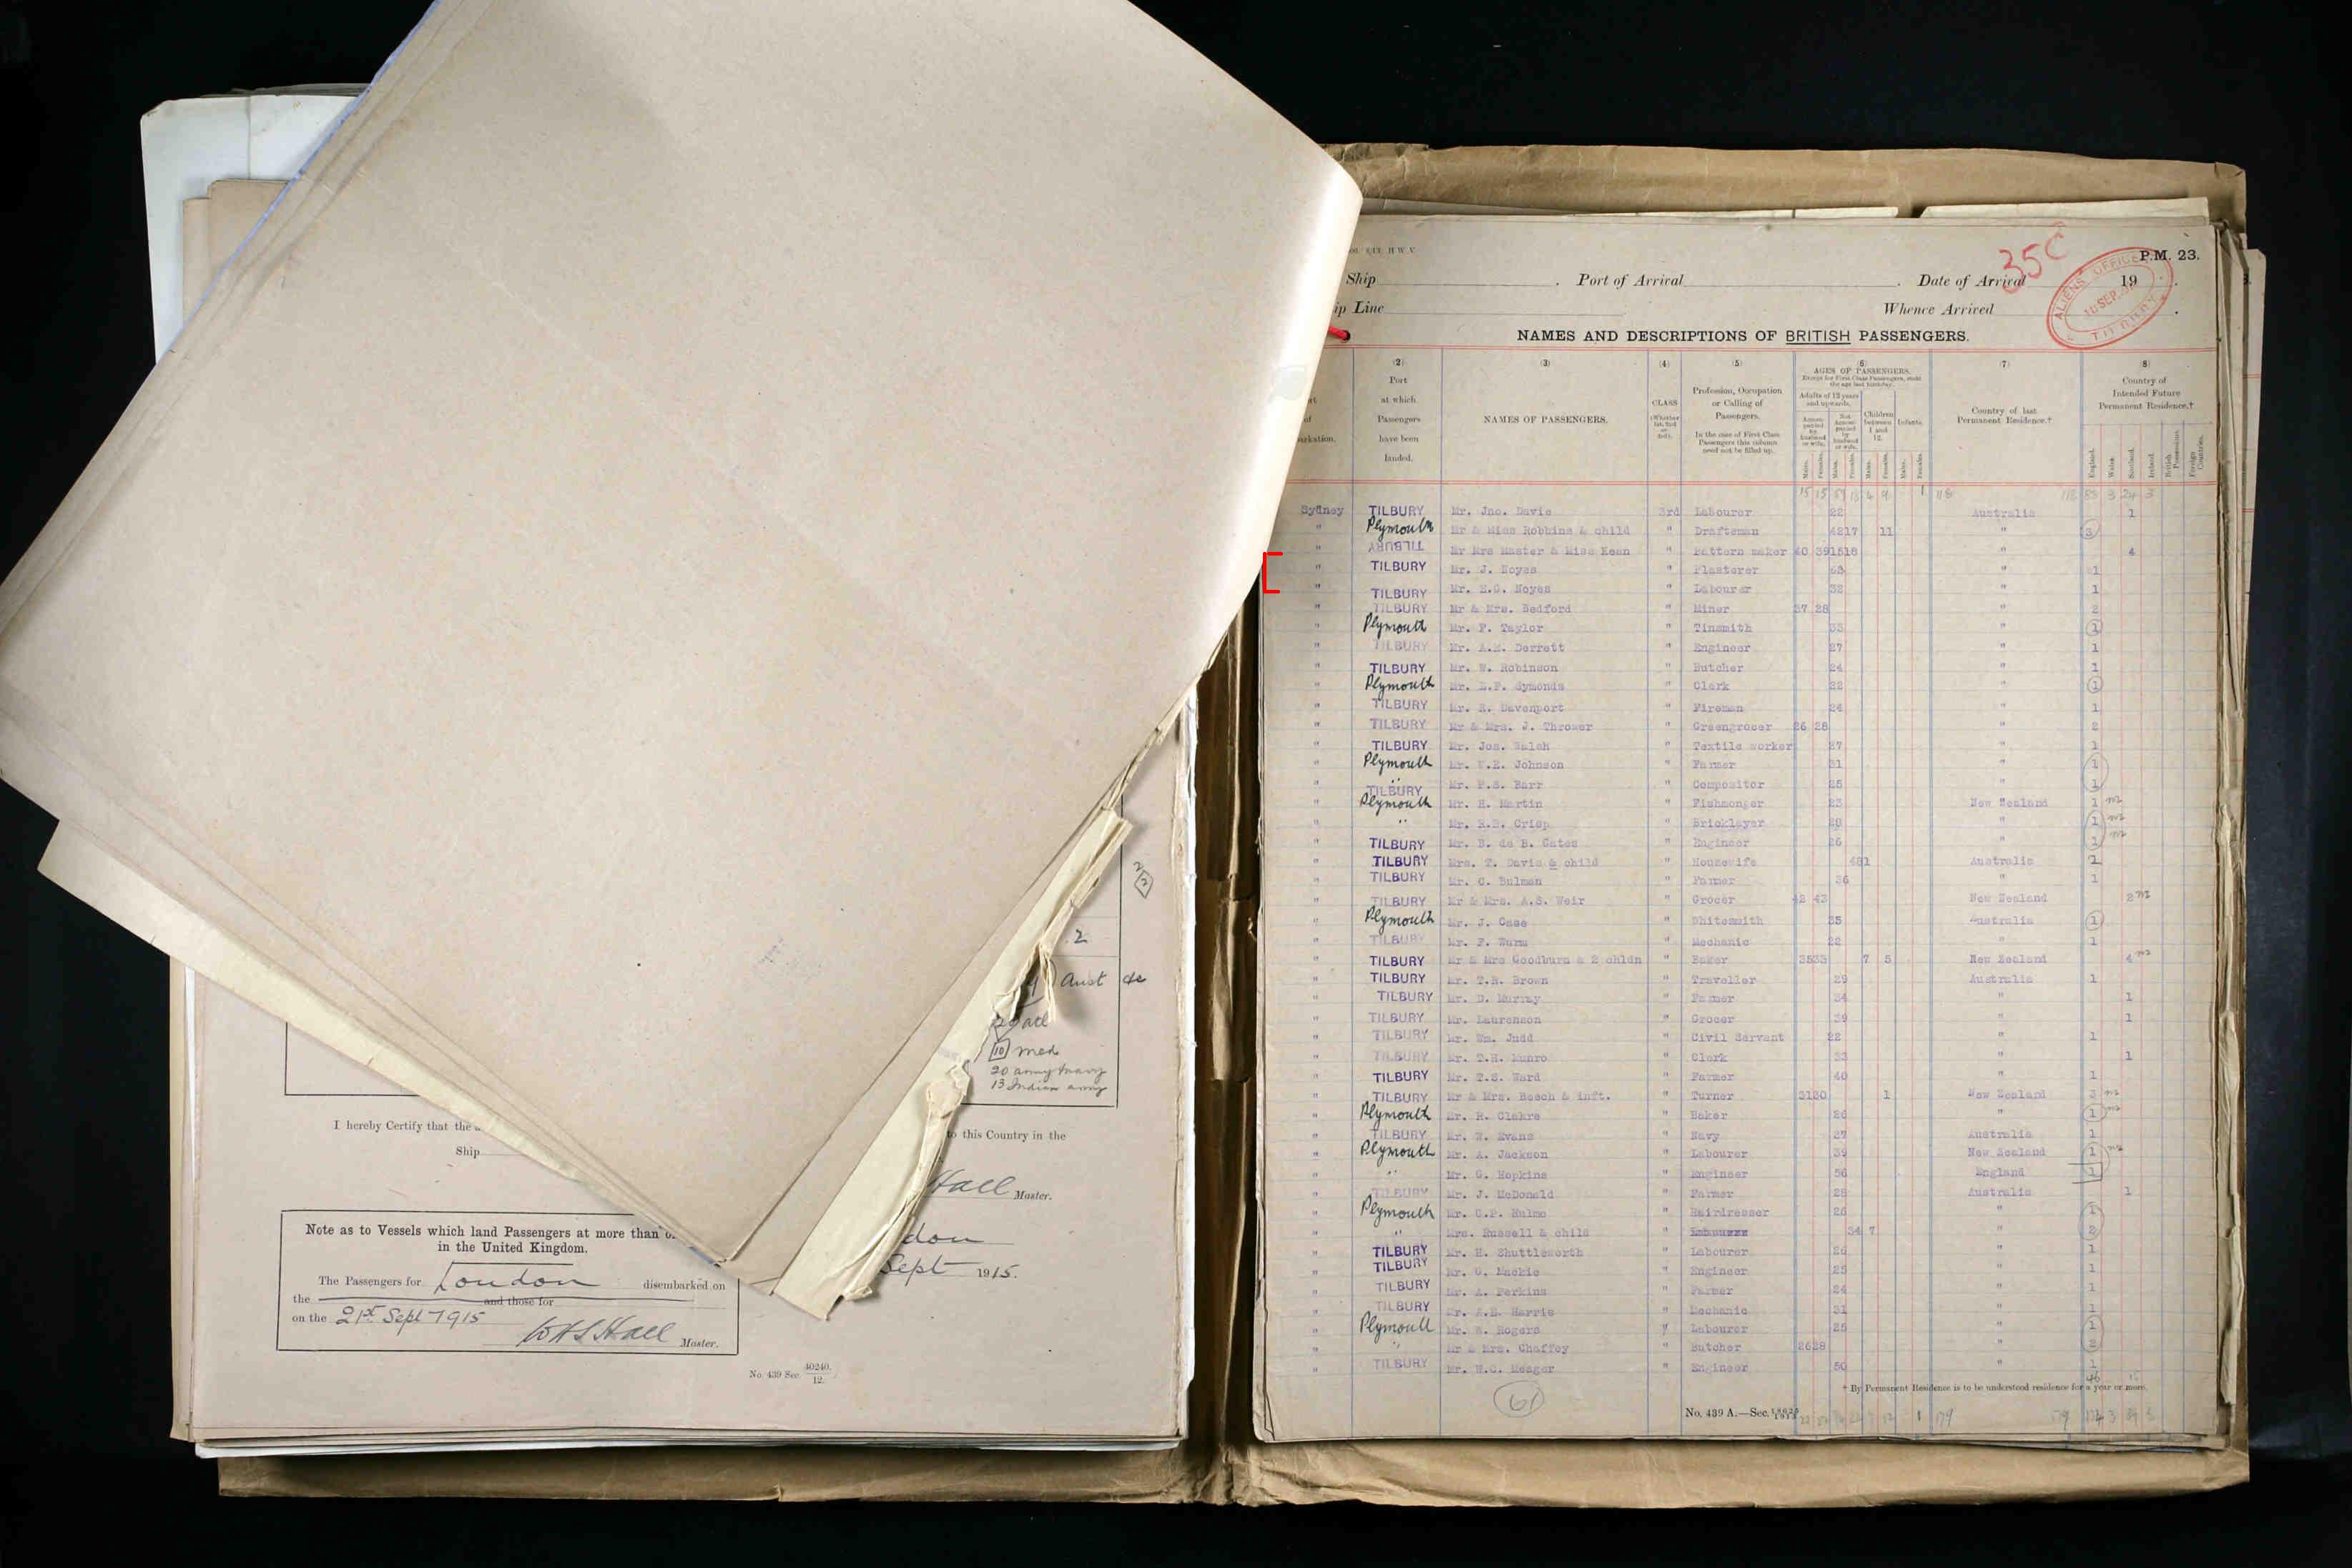 2
Aust &c
2 atl
10 med
20 army & navy
13 Indian army
I hereby Certify that the
to this Country in the
Ship
Hall Master.
don
Sept 1915.
Note as to Vessels which land Passengers at more than
in the United Kingdom.
The Passengers for London disembarked on
the and those for
on the 21st Sept 1915
W H S Hall Master.
No. 439 Sec. 40240. 12.
35c
P.M. 23.
Ship . Port of Arrival . Date of Arrival 19 .
ip Line Whence Arrived .
ALIENS OFFICE SEP. TILBURY
NAMES AND DESCRIPTIONS OF BRITISH PASSENGERS.
(2) (3) (4) (5) (6) (7) (8)
Port at which Passengers have been landed.
NAMES OF PASSENGERS.
CLASS (Whether 1st, 2nd or 3rd).
Profession, Occupation or Calling of Passengers.
In the case of First Class Passengers this column need not be filled up.
AGES OF PASSENGERS.
Except for First Class Passengers, state the age last birthday.
Adults of 12 years and upwards.
Accompanied by husband or wife. Not Accompanied by husband or wife. Children between 1 and 12. Infants.
Males. Females. Males. Females. Males. Females. Males. Females.
Country of last Permanent Residence.†
Country of Intended Future Permanent Residence.†
England. Wales. Scotland. Ireland. British Possessions. Foreign Countries.
Sydney TILBURY Mr. Jno. Davie 3rd Labourer 22 Australia 1
" Plymouth Mr & Miss Robbins & child " Draftsman 4217 11 " 3
" TILBURY Mr Mrs Master & Miss Keen " Pattern maker 40 391518 " 4
" TILBURY Mr. J. Noyes " Plasterer 63 " 1
" TILBURY Mr. H.G. Noyes " Labourer 32 " 1
" TILBURY Mr & Mrs. Bedford " Miner 37 28 " 2
" Plymouth Mr. F. Taylor " Tinsmith 33 " 1
" TILBURY Mr. A.E. Derrett " Engineer 27 " 1
" TILBURY Mr. W. Robinson " Butcher 24 " 1
" Plymouth Mr. L.F. Symonds " Clerk 22 " 1
" TILBURY Mr. R. Davenport " Fireman 24 " 1
" TILBURY Mr & Mrs. J. Thrower " Greengrocer 26 28 " 2
" TILBURY Mr. Jos. Walsh " Textile worker 27 " 1
" Plymouth Mr. W.E. Johnson " Farmer 21 " 1
" " Mr. F.S. Barr " Compositor 25 " 1
" TILBURY Plymouth Mr. H. Martin " Fishmonger 23 New Zealand 1 nz
" " Mr. R.B. Crisp " Bricklayer 28 " 1 nz
" TILBURY Mr. B. de B. Gates " Engineer 26 " 1 nz
" TILBURY Mrs. T. Davis & child " Housewife 481 Australia 2
" TILBURY Mr. C. Bulman " Farmer 36 " 1
" TILBURY Mr & Mrs. A.S. Weir " Grocer 42 43 New Zealand 2 nz
" Plymouth Mr. J. Case " Whitesmith 35 Australia 1
" TILBURY Mr. F. Warm " Mechanic 22 " 1
" TILBURY Mr & Mrs Goodburn & 2 chldn " Baker 3533 7 5 New Zealand 4 nz
" TILBURY Mr. T.H. Brown " Traveller 29 Australia 1
" TILBURY Mr. D. Murray " Farmer 34 " 1
" TILBURY Mr. Laurenson " Grocer 39 " 1
" TILBURY Mr. Wm. Judd " Civil Servant 22 " 1
" TILBURY Mr. T.H. Munro " Clerk 33 " 1
" TILBURY Mr. T.S. Ward " Farmer 40 " 1
" TILBURY Mr & Mrs. Beech & inft. " Turner 3130 1 New Zealand 3 nz
" Plymouth Mr. R. Clakre " Baker 26 " 1 nz
" TILBURY Mr. W. Evans " Navy 37 Australia 1
" Plymouth Mr. A. Jackson " Labourer 39 New Zealand 1 nz
" " Mr. G. Hopkins " Engineer 56 England 1
" TILBURY Mr. J. McDonald " Farmer 28 Australia 1
" Plymouth Mr. C.P. Hulme " Hairdresser 26 " 1
" " Mrs. Russell & child " Labourer 34 7 " 2
" TILBURY Mr. H. Shuttleworth " Labourer 26 " 1
" TILBURY Mr. G. Mackie " Engineer 25 " 1
" TILBURY Mr. A. Perkins " Farmer 24 " 1
" TILBURY Mr. A.E. Harris " Mechanic 31 " 1
" Plymouth Mr. W. Rogers " Labourer 25 " 1
" " Mr & Mrs. Chaffey " Butcher 2628 " 2
" TILBURY Mr. W.C. Meager " Engineer 50 " 1
46 15
† By Permanent Residence is to be understood residence for a year or more.
61
No. 439 A.—Sec.
1 179